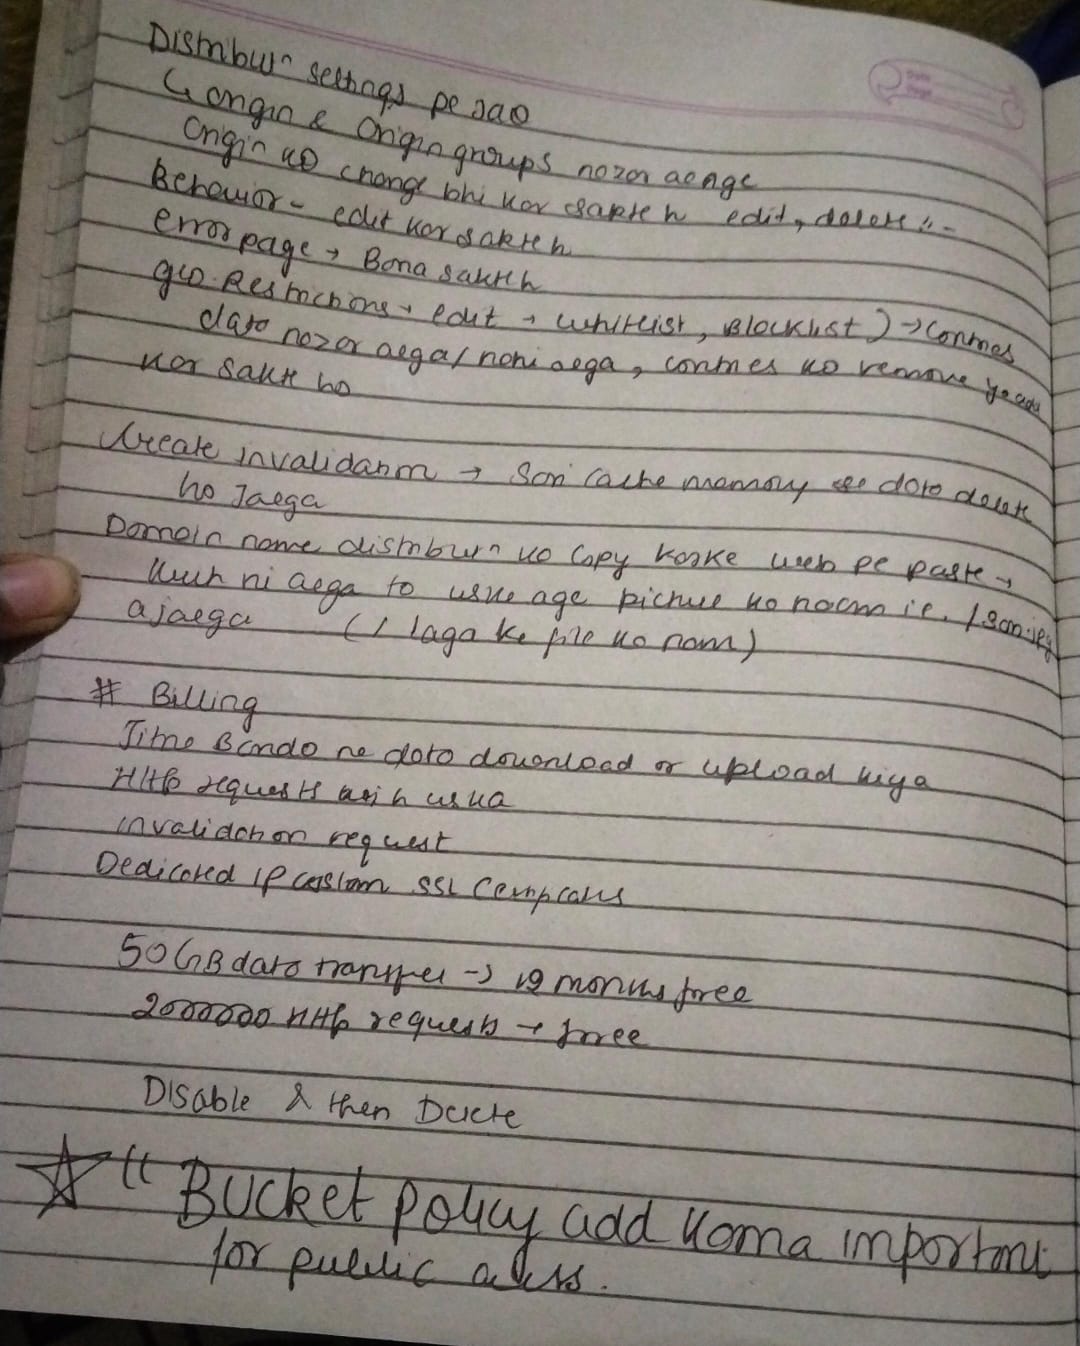 Distribun settings pe jao
↳ origin & Origin groups nazar aenge
Origin ko change bhi kar sakte h edit, delete
Behavior - edit kar sakte h
Error page → Bana sakte h
geo. Restrictions → edit → whitelist, Blocklist) → Contries
data nazar aega/nahi aega, contries ko remove ya add
kar sakte ho
Create invalidation → Sari Cache memory se data delete
ho Jaega
Domain name distribun ko Copy karke web pe paste →
Kuch ni aega to uske age picture ka naam i.e.
ajaega ( / laga ke file ka nam)
# Billing
Jitne Bando ne data download or upload kiya
Http requests uska
invalidation request
Dedicated IP custom SSL Certificates
50 GB data transfer → 12 months free
2000000 Http requests → free
Disable & then Delete
☆ " Bucket policy add karna important
for public access.